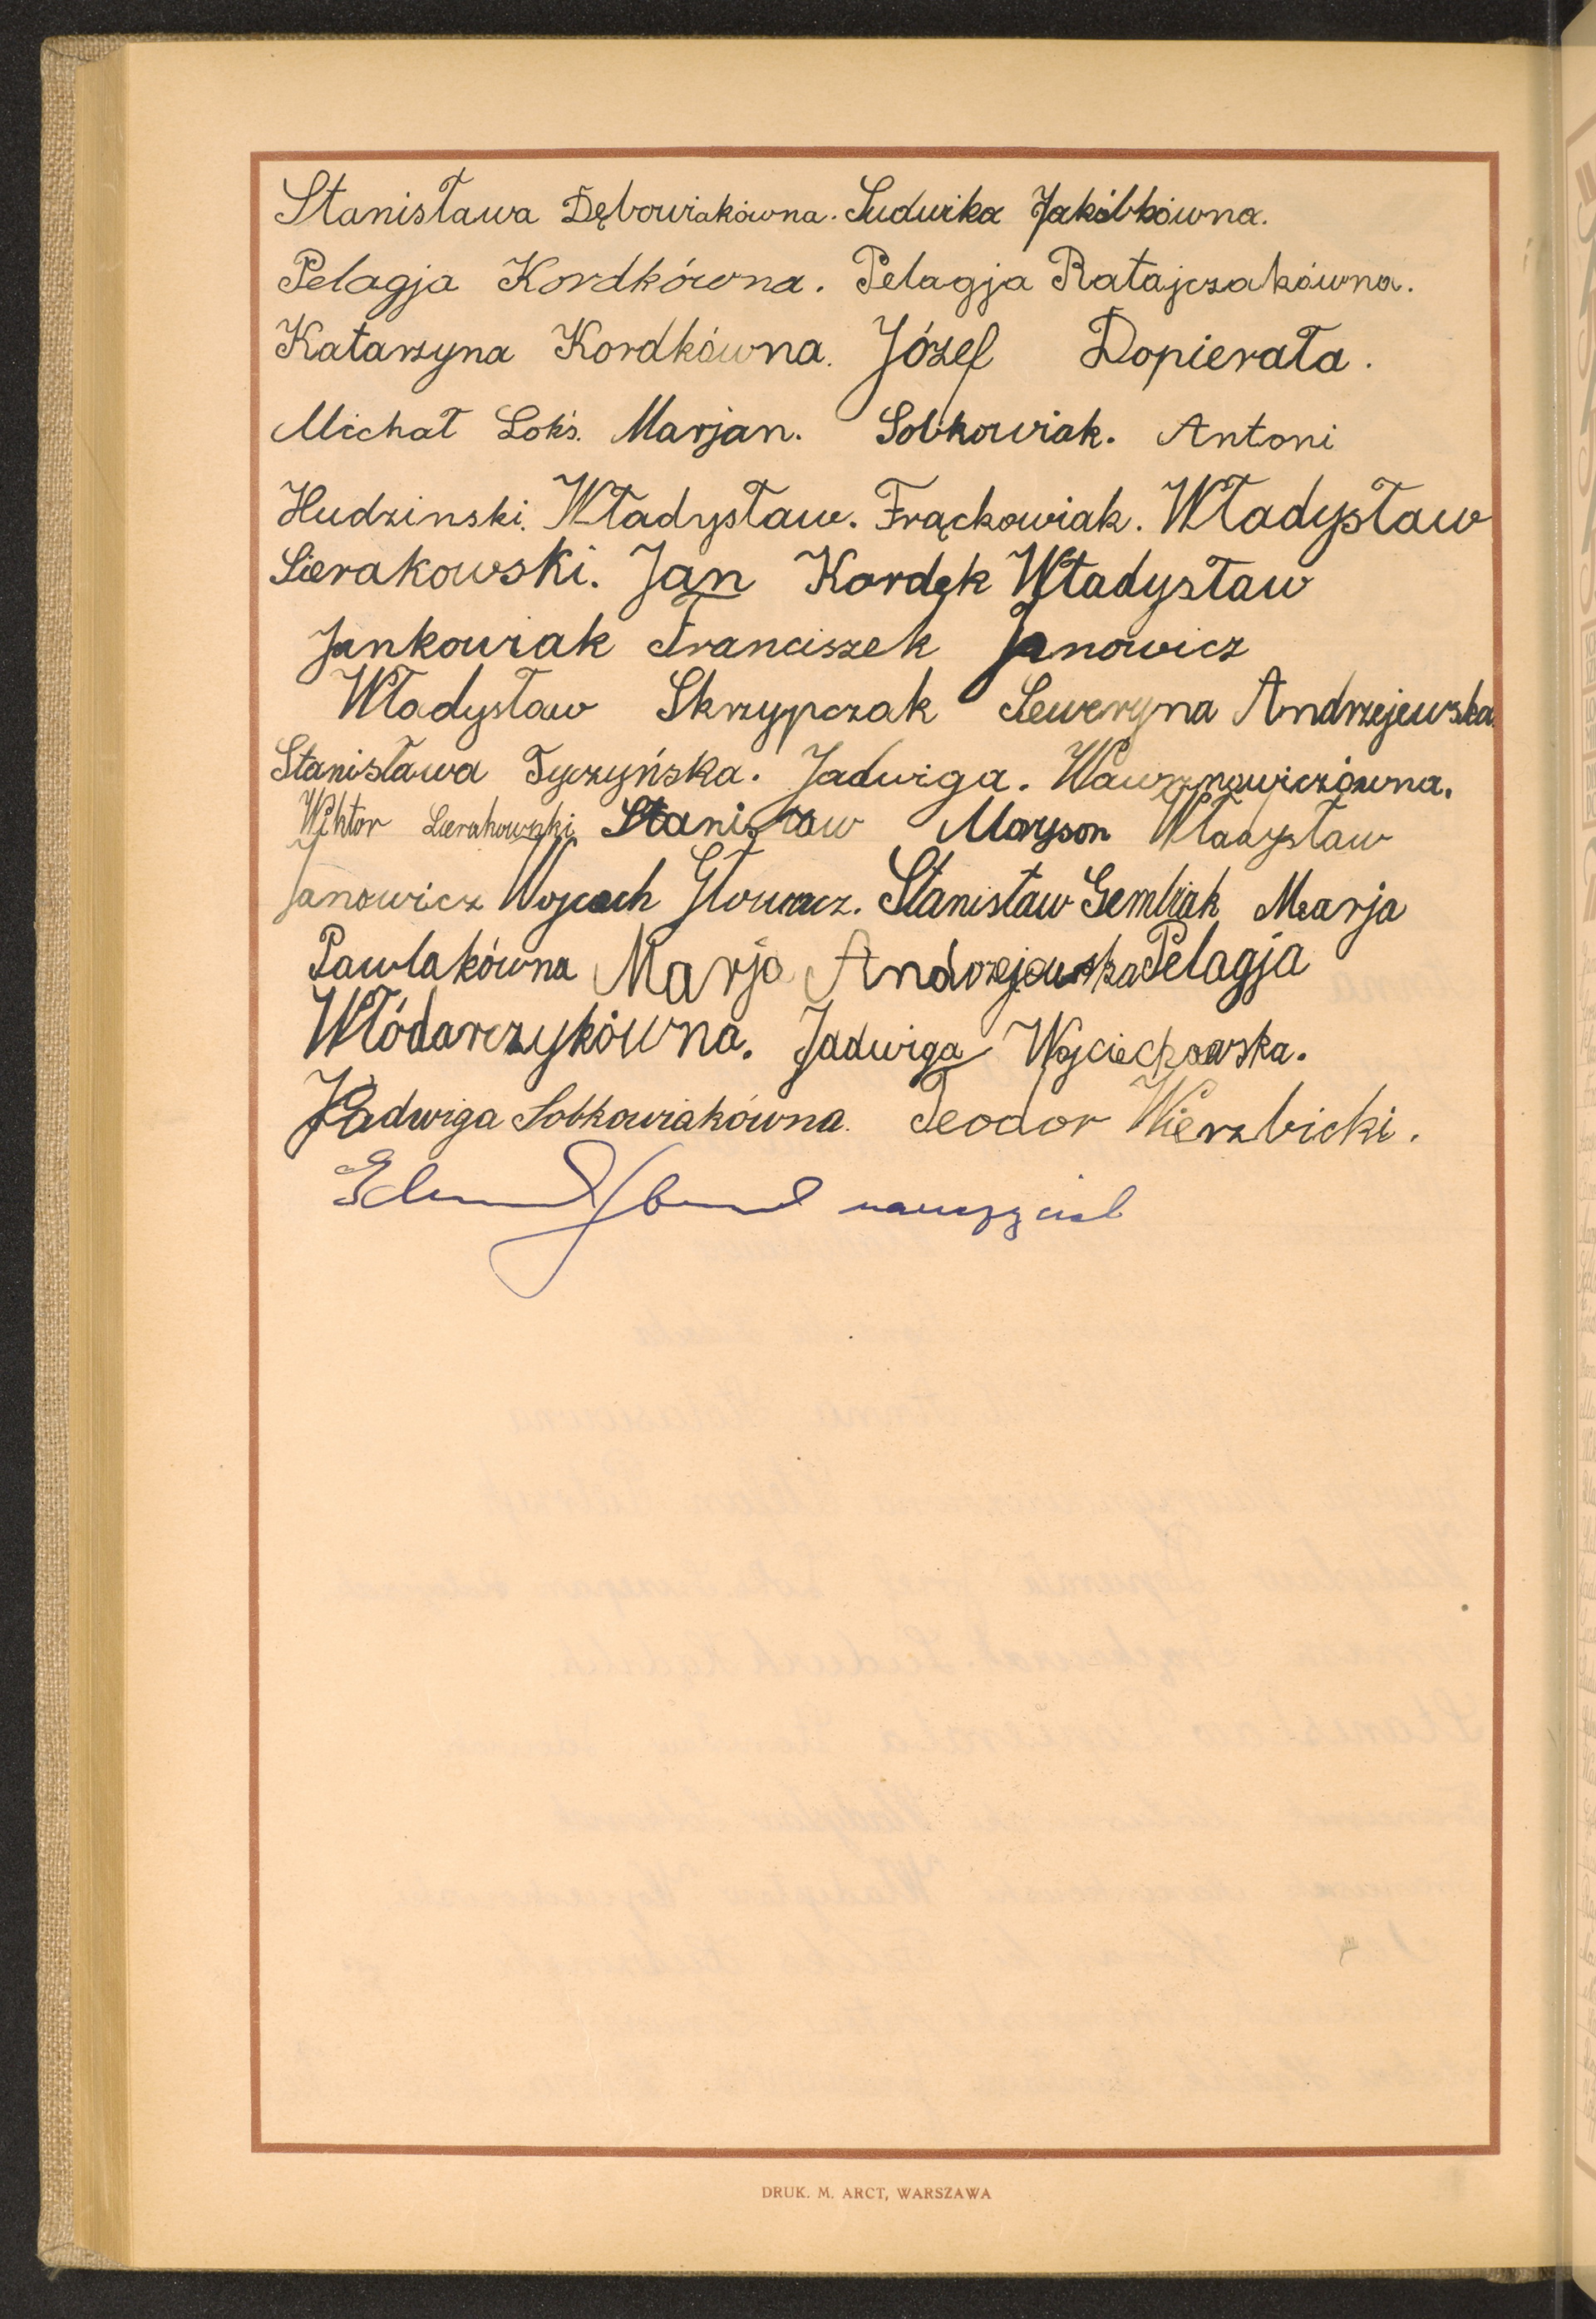 Stanisława Dębowiakówna. Ludwika Jakóbkówna.
Pelagja Kordkówna. Pelagja Ratajczakówna.
Katarzyna Kordkówna. Józef Dopierała.
Michał Loks. Marjan. Sobkowiak. Antoni
Hudzinski. Władysław. Frąckowiak. Władysław
Sierakowski. Jan Kordęk Władysław
Jankowiak Franciszek Janowicz
Władysław Skrzypczak Seweryna Andrzejewska.
Stanisława Tyczyńska. Jadwiga. Wawrznowiczówna.
Wiktor Sierakowski Stanisław Moryson Władysław
Janowicz Wojciech Stanisław Gembiak Marja
Pawlakówna Marja Andrzejewska Pelagja
Włódarczykówna. Jadwiga Wojciechowska.
Jadwiga Sobkowiakówna. Teodor Wierzbicki.
nauczyciel
DRUK. M. ARCT, WARSZAWA